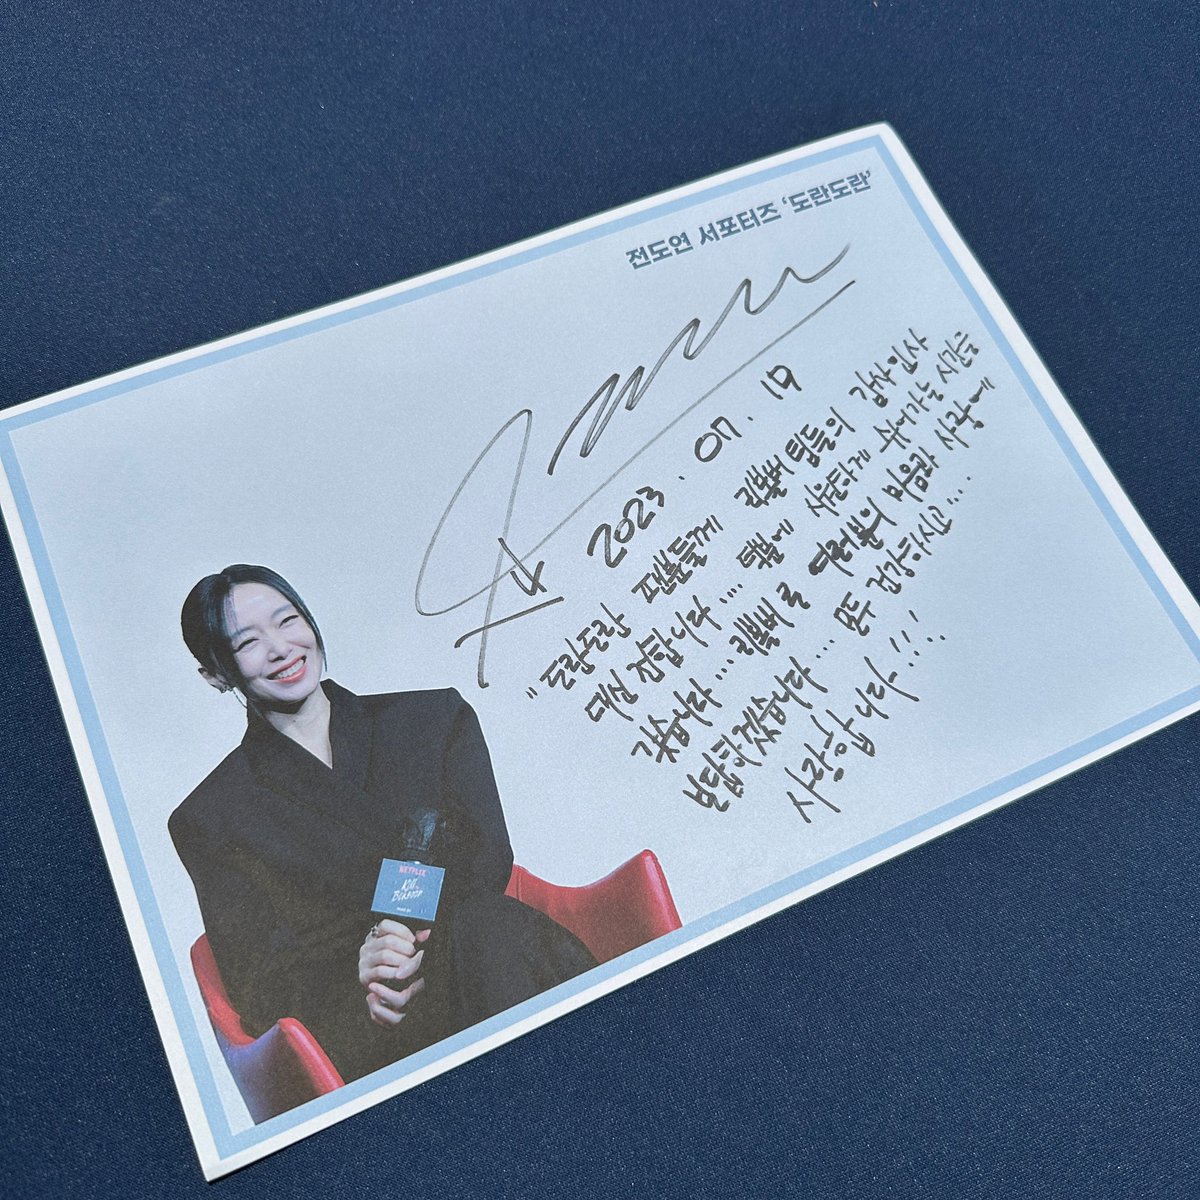 전도연 서포터즈 '도란도란'
2023. 07. 19
"도란도란 팬분들께 킬빼 팀들의 감사인사
대신 전합니다.... 덕분에 시원하게 쉬어가는 시간을
가졌습니다.... 킬빼를 여러분의 마음과 사랑"
보답하겠습니다... 모두 건강하시고....
사랑합니다!!!
NETFLIX
Kill
Boksoon